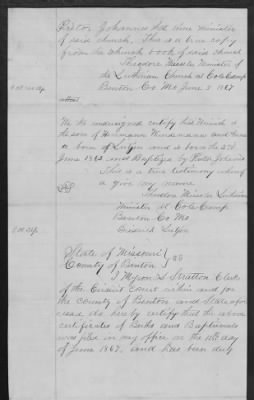 Pastor Johannes held nine minister
of said church, This is a true copy
from the church book of said church
Theodore Miessler Minister of
the Lutheran Church at Cole Camp
Benton Co Mo June 5 1867
We the undersigned certify his
the son of Hermann and
a born of and is born the
June 1863 and Baptized by Pastor Johannes
This is a true testimony whereof
a give my name
Theodore Miessler Lutheran
Minister at Cole Camp
Benton Co Mo
Diedrich
State of Missouri
County of Benton } ss
I Myron S Stratton Clerk
of the Circuit Court within and for
the County of Benton and State afore
said do hereby certify that the above
certificates of Births and Baptismals
was filed in my office on the day
of June 1867, and has been duly